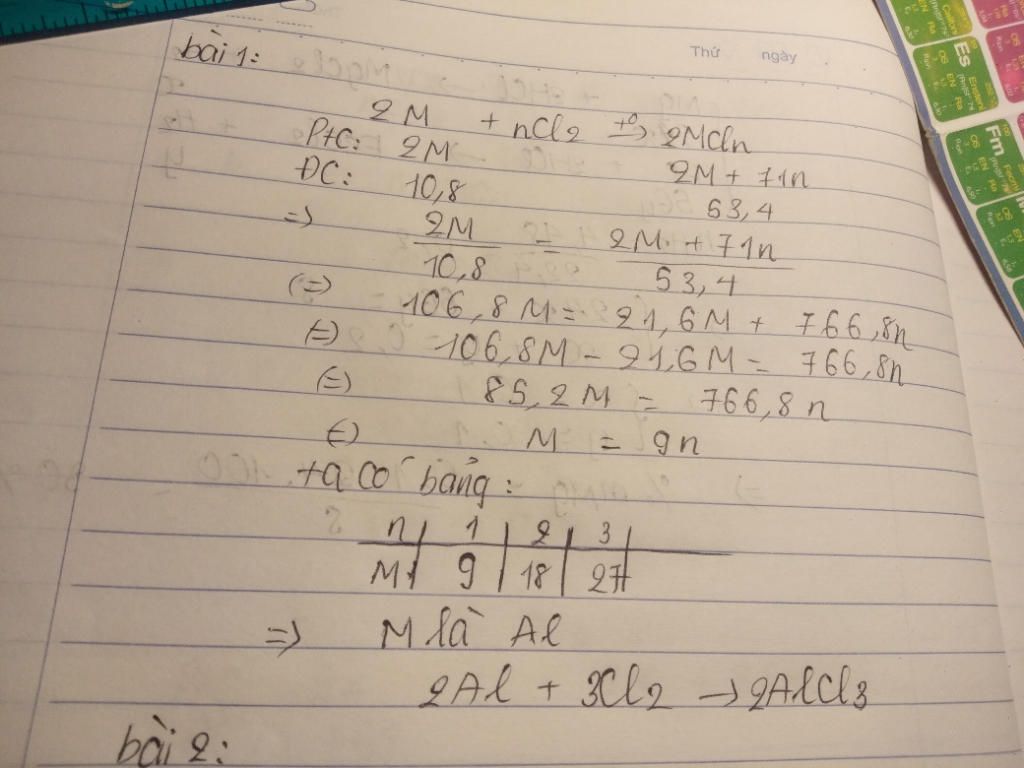 Thứ ngày
bài 1:
2M + nCl2 t°→ 2MCln
PTC: 2M 2M + 71n
ĐC: 10,8 53,4
=> 2M/10,8 = 2M + 71n/53,4
(=) 106,8M = 21,6M + 766,8n
(=) 106,8M - 21,6M = 766,8n
(=) 85,2M = 766,8n
(=) M = 9n
ta có bảng:
n | 1 | 2 | 3
M | 9 | 18 | 27
=> M là Al
2Al + 3Cl2 → 2AlCl3
bài 2:
Es
Fm